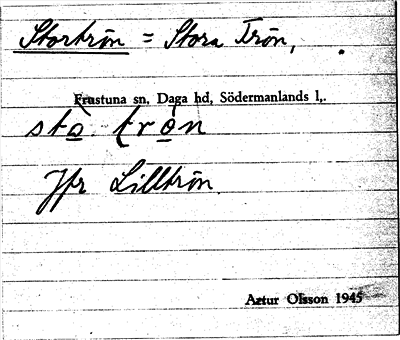 Stortrön = Stora Trön,
Frustuna sn, Daga hd, Södermanlands l,.
sto trön
Jfr Lilltrön
Artur Olsson 1945